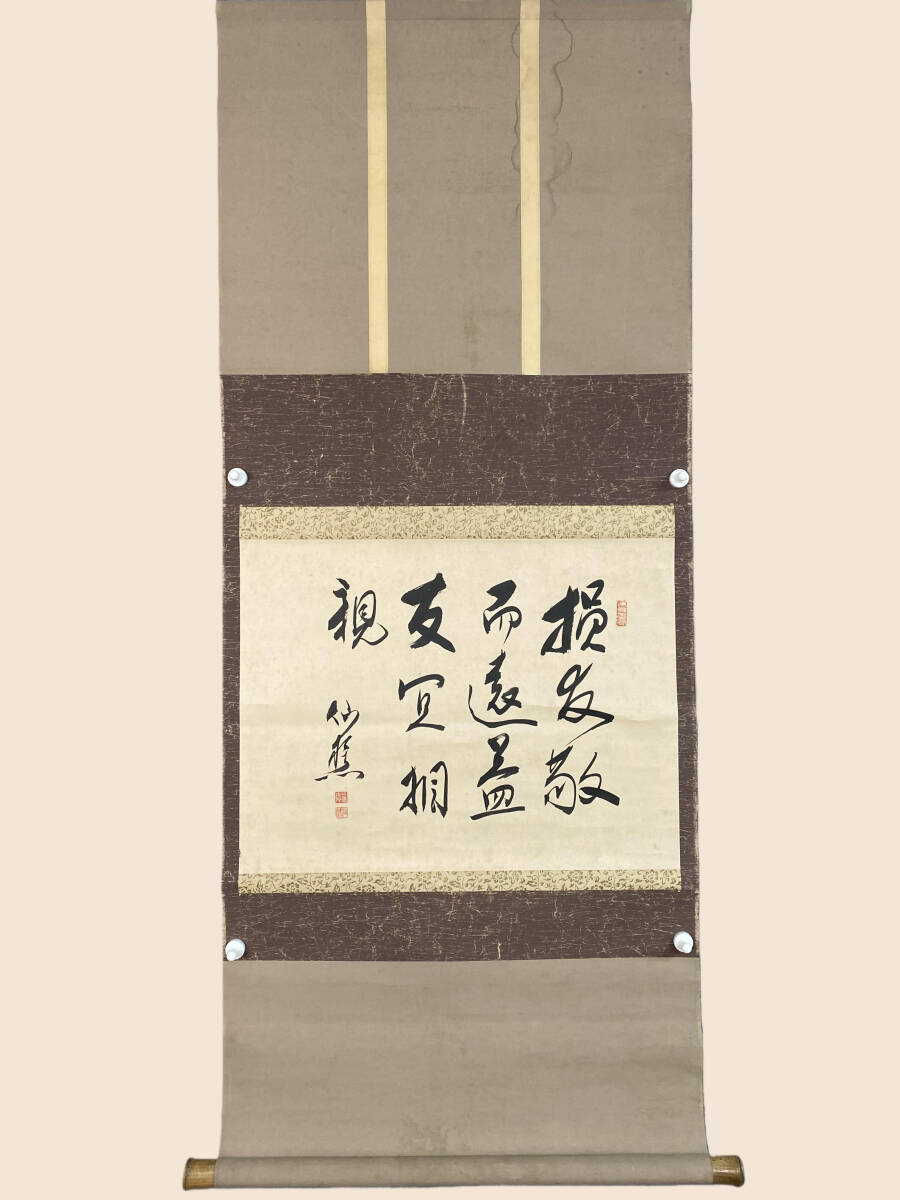 損友敬
而遠益
友宜相
親
仙樵